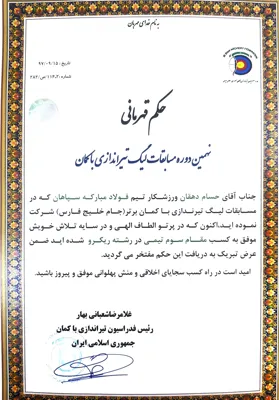 به نام خدای مهربان
تاریخ: ۹۷/۰۹/۱۵
حکم قهرمانی
نهمین دوره مسابقات لیگ تیراندازی با کمان
جناب آقای حسام دهقان ورزشکار تیم فولاد مبارکه سپاهان که در
مسابقات لیگ تیرندازی با کمان برتر(جام خلیج فارس) شرکت
نموده اید.اکنون که در پرتو الطاف الهی و در سایه تلاش خویش
موفق به کسب مقام سوم تیمی در رشته ریکرو شده اید ضمن
عرض تبریک به دریافت این حکم مفتخر می گردید.
امید است در راه کسب سجایای اخلاقی و منش پهلوانی موفق و پیروز باشید.
غلامرضاشعبانی بهار
رئیس فدراسیون تیراندازی با کمان
جمهوری اسلامی ایران